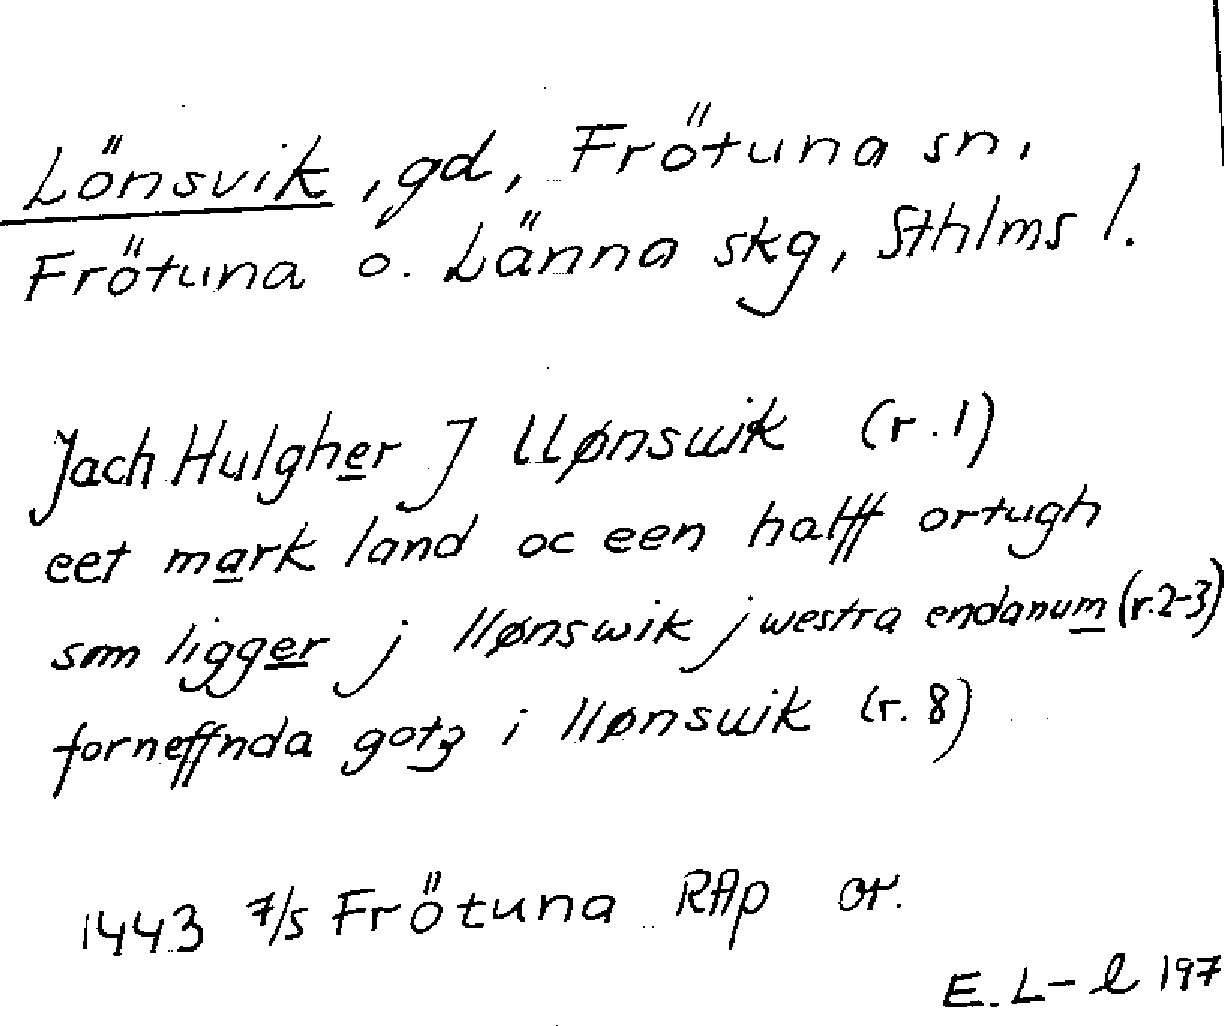 Lönsvik, gd, Frötuna sn,
Frötuna o. Länna skg, Sthlms l.
Jach Hulgher J llønswik (r.1)
eet mark land oc een halff ortugh
som ligger j llønswik j westra endanum (r.2-3)
forneffnda gotz i llønswik (r. 8)
1443 7/5 Frötuna RAp or.
E. L-l 197